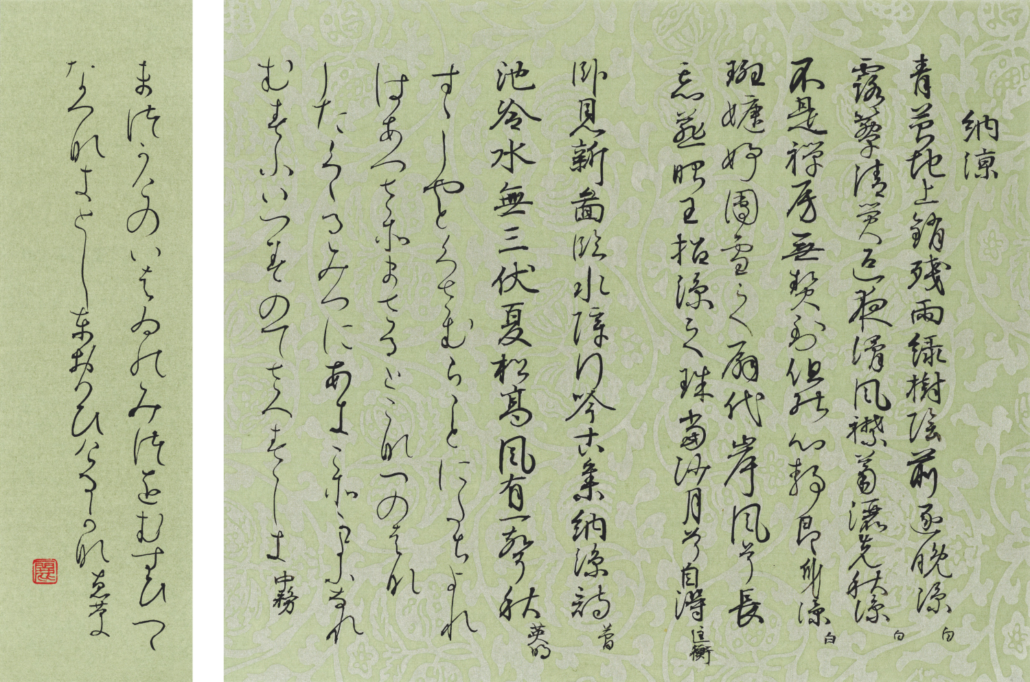 納涼
青苔地上銷残雨緑樹陰前逐晩涼 白
露簟清瑩迎夜滑風襟蕭灑先秋涼 白
不是禅房無熱到但能心静即身涼 白
班婕妤團雪之扇代岸風兮長
忘燕昭王招涼之珠當沙月兮自得 匡衡
臥見新圖臨水障行吟古集納涼詩 菅
池冷水無三伏夏松高風有一聲秋 英明
すゝしやとくさむらことにたちよれ
はあつさそまさるとこなつのはな
したくゝるみつにあきこそかよふなれ
むすふいつみのてさへすゝしき 中務
まつかけのいはゐのみつをむすひつゝ
なつなきとしとおもひけるかな 恵慶